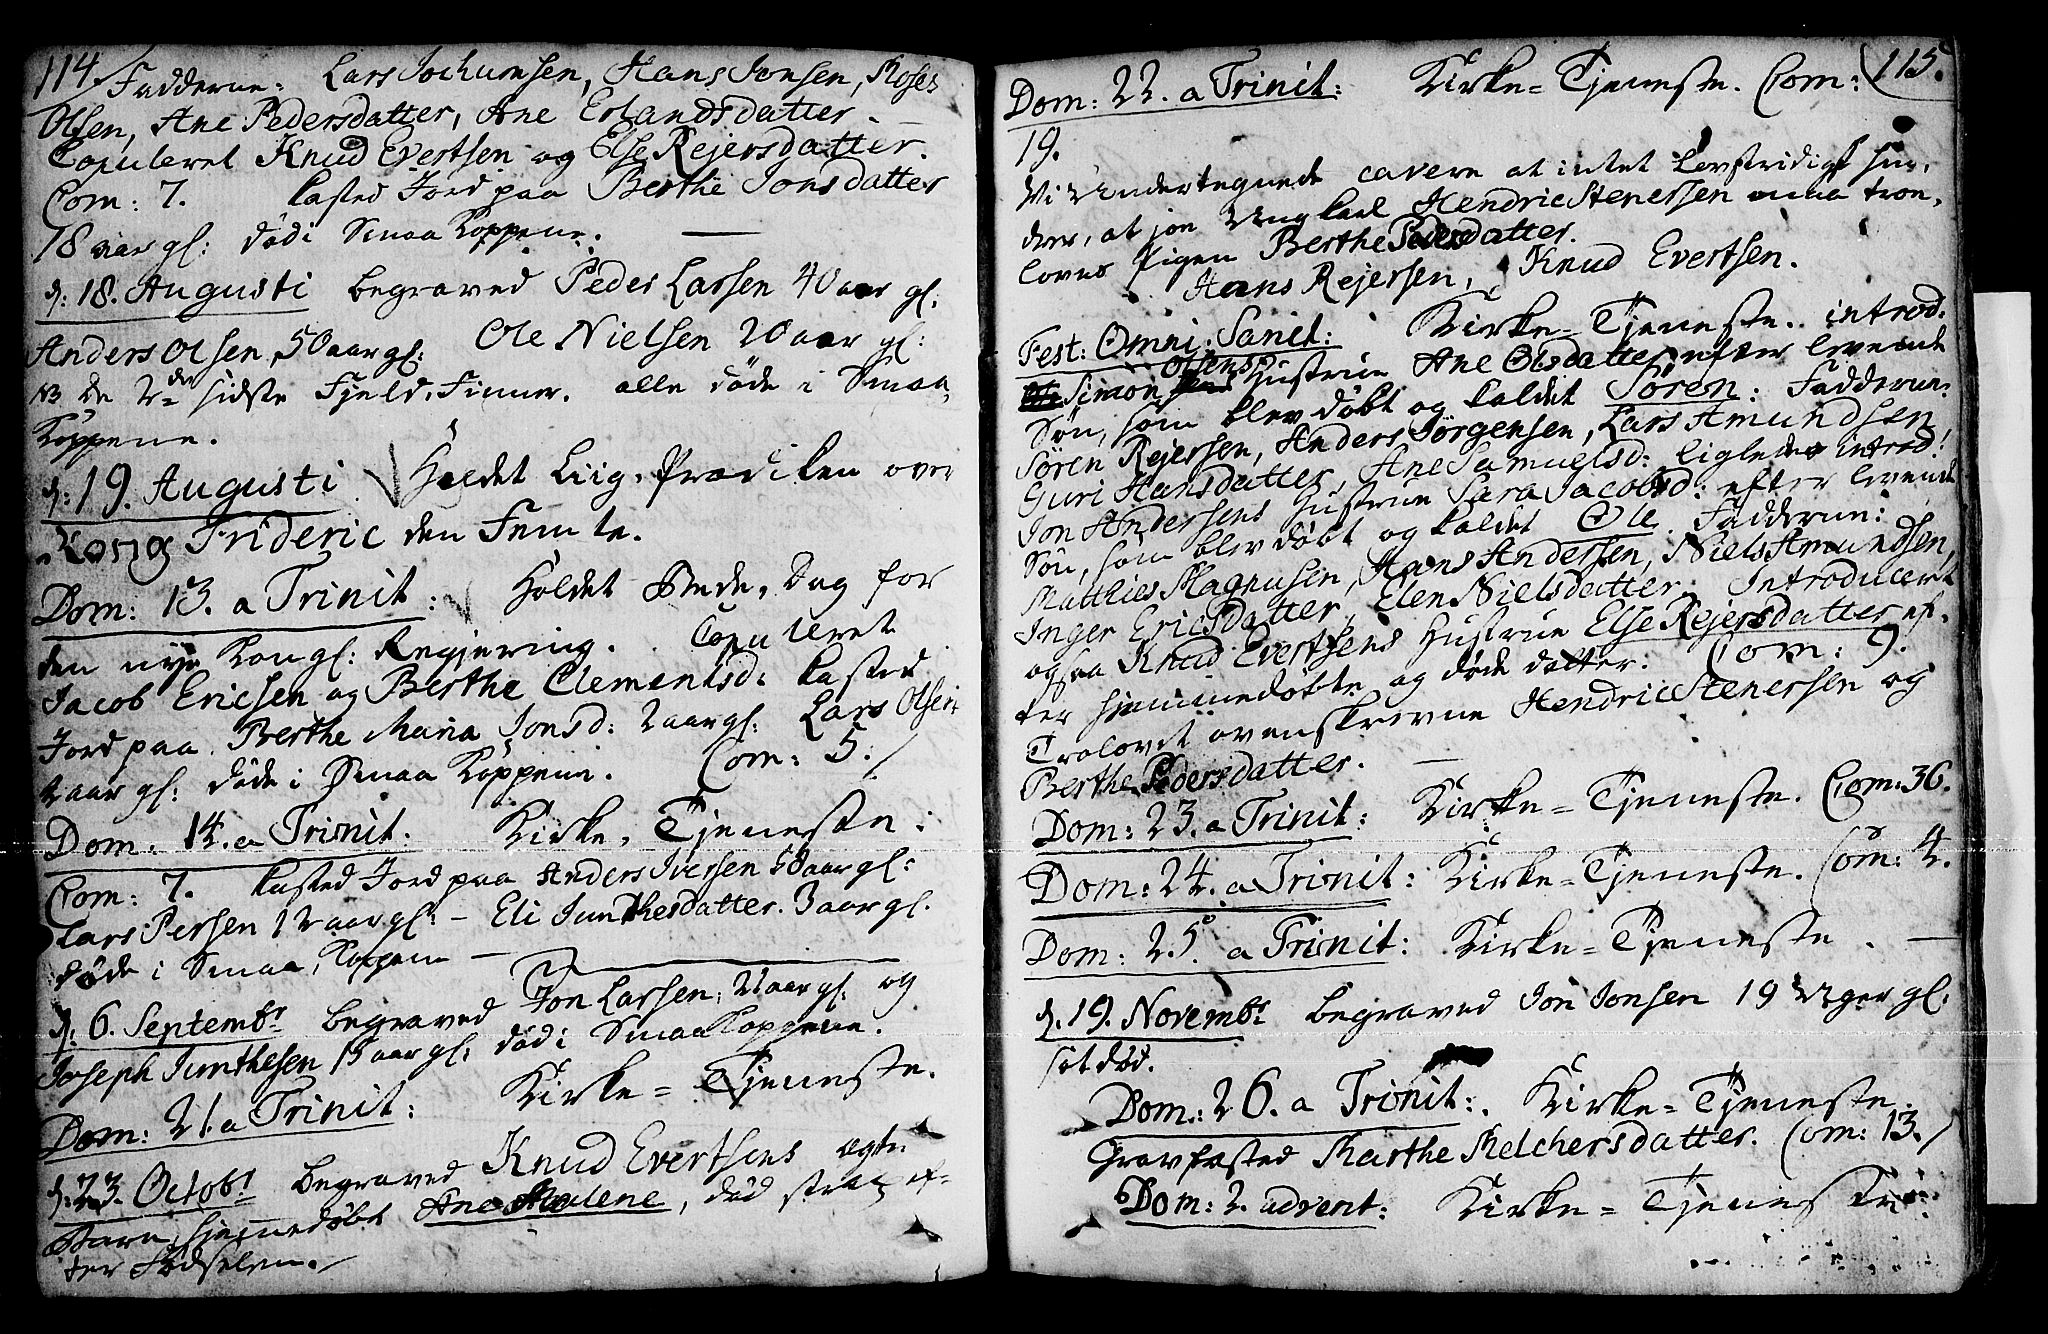 114 Fadderne: Lars Jochumsen, Hans Jonsen, Moses
Olsen, Ane Pedersdatter, Ane Erlandsdatter.
Copuleret Knud Evertsen og Else Rejersdatter.
Com: 7. kasted Jord paa Berthe Jonsdatter
18 aar gl: død i Smaa Koppene.
d: 18. Augusti begraved Peder Larsen 40 aar gl.
Anders Olsen, 50 aar gl: Ole Nielsen 20 aar gl:
NB de 2de sidste Fjeld-Finner. alle døde i Smaa
Koppene.
d: 19. Augusti Holdet Liig-Prædiken over
Kong Frideric den Femte.
Dom: 13. a Trinit: Holdet Bede-Dag for
den nye Kongl: Regjering. Copuleret
Jacob Ericsen og Berthe Clementsd: kasted
Jord paa Berthe Maria Jonsd: 2 aar gl: Lars Olsen
2 aar gl: døde i Smaa Koppene. Com: 5./
Dom: 14. a Trinit. Kirke-Tjeneste:
Com: 7. kasted Jord paa Anders Iversen 58 aar gl:
Lars Persen 12 aar gl: – Eli Junthesdatter. 3 aar gl.
døde i Smaa-Koppene –
d: 6. Septembr begraved Jon Larsen, 21 aar gl: og
Joseph Junthesen 13 aar gl: død i Smaa Koppene.
Dom: 21. a Trinit: Kirke=Tjeneste.
d: 23. Octobr begraved Knud Evertsens ægte
Barn, hjemmedøbt Ane Malene, død strax ef-
ter Fødselen./
Dom: 22. a Trinit: Kirke=Tjeneste. Com: 115.
19.
Vi Undertegnede cavere at intet Lovstridigt hin-
drer, at jo Ungkarl Hendric Stenersen maa tro-
loves Pigen Berthe Pedersdatter.
Hans Rejersen, Knud Evertsen.
Fest: Omni: Sanct: Kirke=Tjeneste. introd.
Simon Olsens Hustrue Ane Olsdatter efter levende
Søn, som blev døbt og kaldet Søren: Fadderne:
Søren Rejersen, Anders Jørgensen, Lars Amundsen,
Guri Hansdatter, Ane Samuelsd: ligledes introd:
Jon Andersens Hustrue Sara Jacobsd: efter levende
Søn, som blev døbt og kaldet Ole. Fadderne:
Matthies Magnusen, Hans Andersen, Niels Amundsen,
Inger Ericsdatter, Elen Nielsdatter. Introduceret
ogsaa Knud Evertsens Hustrue Else Rejersdatter ef-
ter hjemmedøbte og døde datter. Com: 9.
Trolovet ovenskrevne Hendric Stenersen og
Berthe Pedersdatter.
Dom: 23. a Trinit: Kirke=Tjeneste. Com: 36.
Dom: 24. a Trinit: Kirke=Tjeneste. Com: 4.
Dom: 25. a Trinit: Kirke=Tjeneste.
d. 19. Novembr begraved Jon Jonsen 19 Uger gl:
sotdød.
Dom: 26. a Trinit: Kirke=Tjeneste.
Gravfæsted Marthe Melchersdatter. Com: 13./
Dom: 2. advent: Kirke=Tjeneste